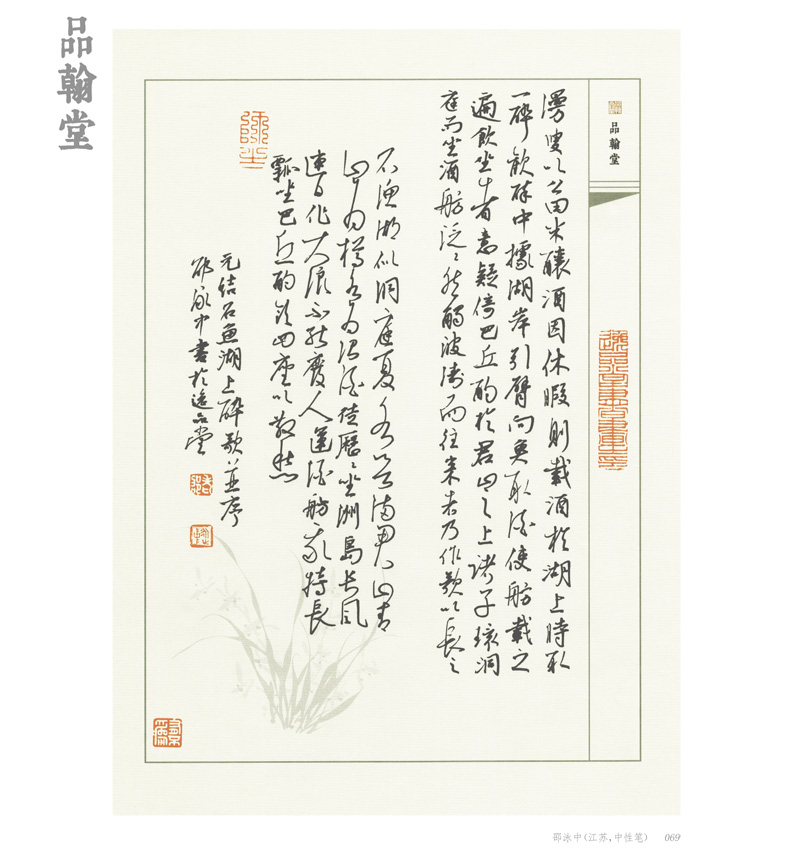 品翰堂
品翰堂
漫叟以公田米釀酒因休暇則載酒於湖上時取
一醉歡醉中據湖岸引臂向魚取酒使舫載之
遍飲坐者意疑倚巴丘酌於君山之上諸子環洞
庭而坐酒舫泛々然觸波濤而往來者乃作歌以長之
石漁湖似洞庭夏水欲滿君山青
山為樽水為沼酒徒歷々坐洲島長風
連日作大浪不能廢人運酒舫我持長
瓢坐巴丘酌飲四座以散愁
元结石魚湖上醉歌並序
邵泳中書於逸品堂
邵泳中(江苏,中性笔) 069